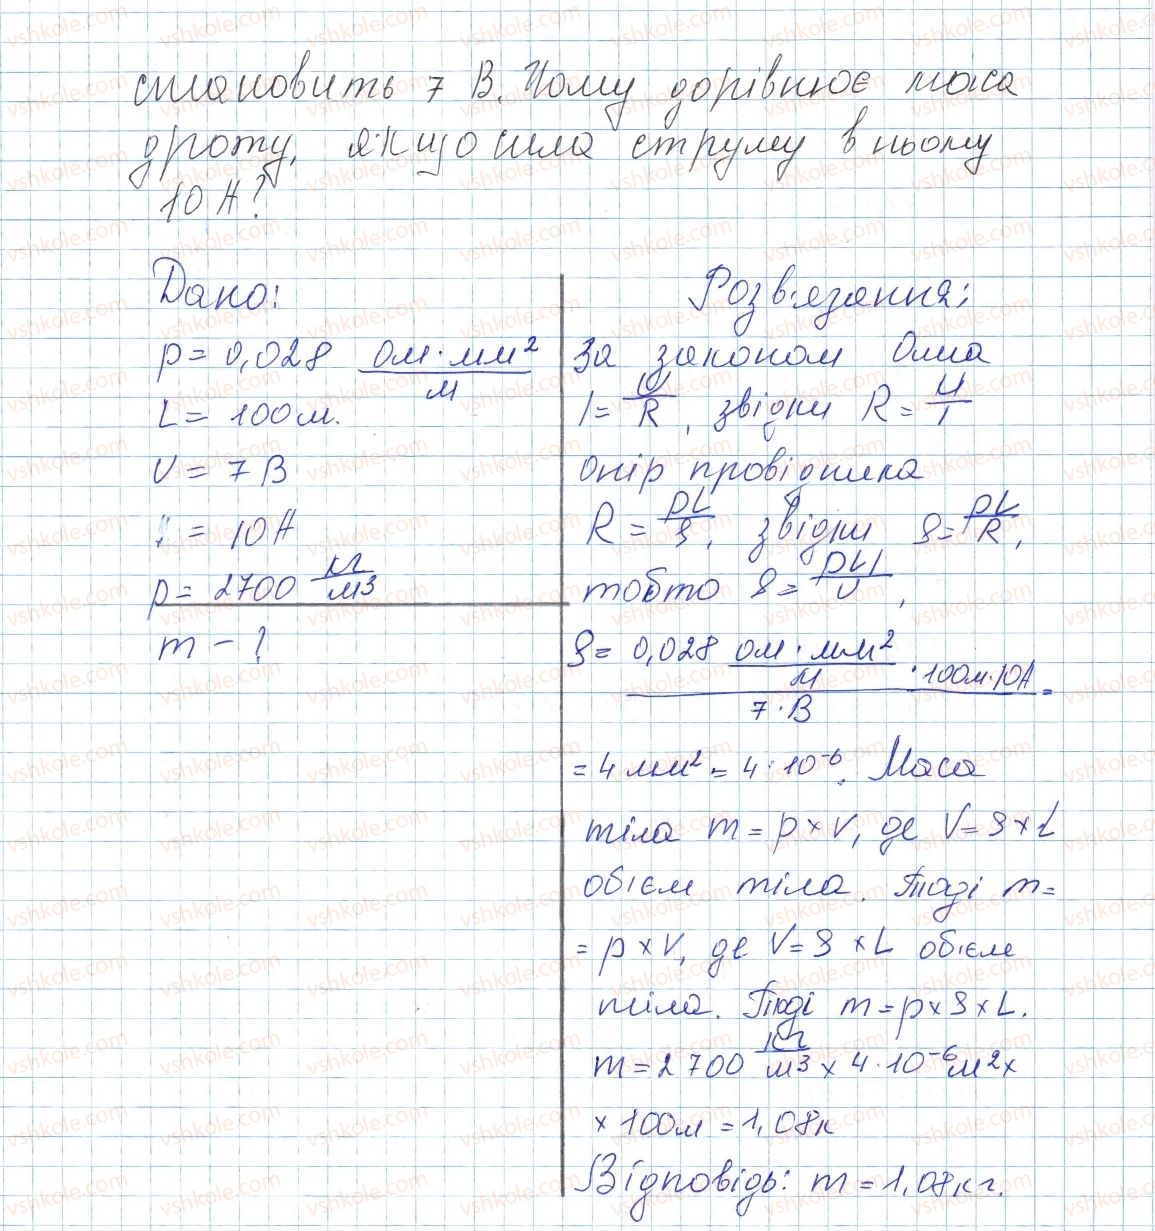 становить 7 В. Чому дорівнює маса
дроту, якщо сила струму в ньому
10 А?
Дано:
ρ = 0,028 Ом·мм²/м
L = 100 м.
U = 7 В
I = 10 А
ρ = 2700 кг/м3
m - ?
Розв'язання:
За законом Ома
I = U/R, звідки R = U/I
опір провідника
R = ρL/S, звідки S = ρL/R,
тобто S = ρLI/U,
S = 0,028 Ом·мм²/м · 100м·10А / 7·В =
= 4 мм² = 4·10⁻⁶. Маса
тіла m = ρ × V, де V = S × L
об'єм тіла. Тоді m =
= ρ × V, де V = S × L об'єм
тіла. Тоді m = ρ × S × L.
m = 2700 кг/м3 × 4·10⁻⁶ м² ×
× 100м = 1,08к
Відповідь: m = 1,08 кг.